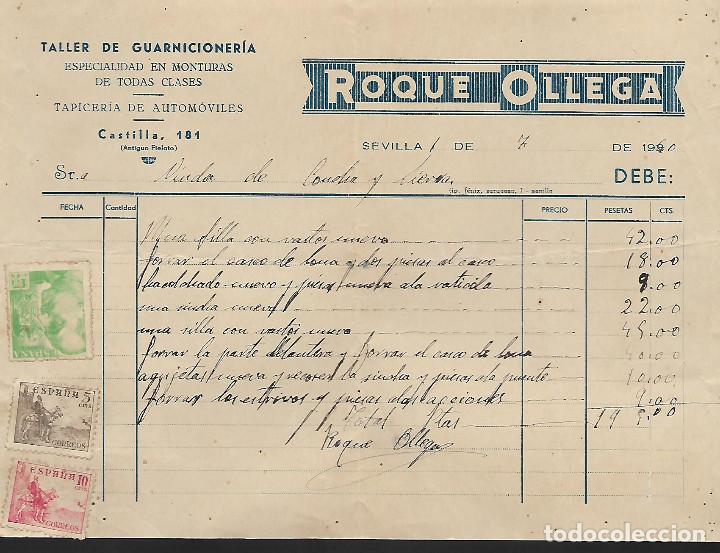 TALLER DE GUARNICIONERÍA
ESPECIALIDAD EN MONTURAS
DE TODAS CLASES
TAPICERÍA DE AUTOMÓVILES
Castilla, 181
(Antiguo Fielato)
ROQUE OLLEGA
SEVILLA 1 DE 7 DE 1940
Sr.a Viuda de Concha y Sierra DEBE:
Tip. Fénix, 1 - sevilla
FECHA Cantidad PRECIO PESETAS CTS.
Una silla con vastos nuevo 42.00
forrar el caso de lona y dos piesas al caso 18.00
nuevo y piesa nueva ala 9.00
una sincha nueva 22.00
una silla con vastos nuevo 45.00
forrar la parte delantera y forrar el caso de lona 40.00
agujetas nueva y recorer la sincha y piesas ala puente 10.00
forrar los estrivos y piesas alas aciones 9.00
Total Ptas 195.00
Roque Ollega
ESPAÑA
ESPAÑA 5 CTS
CORREOS
ESPAÑA 10 CTS
CORREOS
todocoleccion